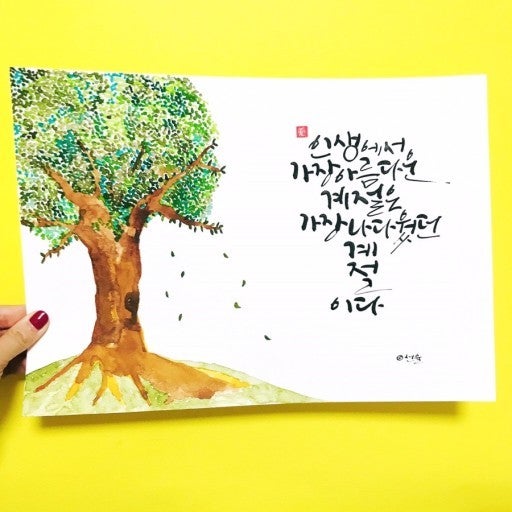 인생에서
가장아름다운
계절은
가장나다웠던
계
절
이다